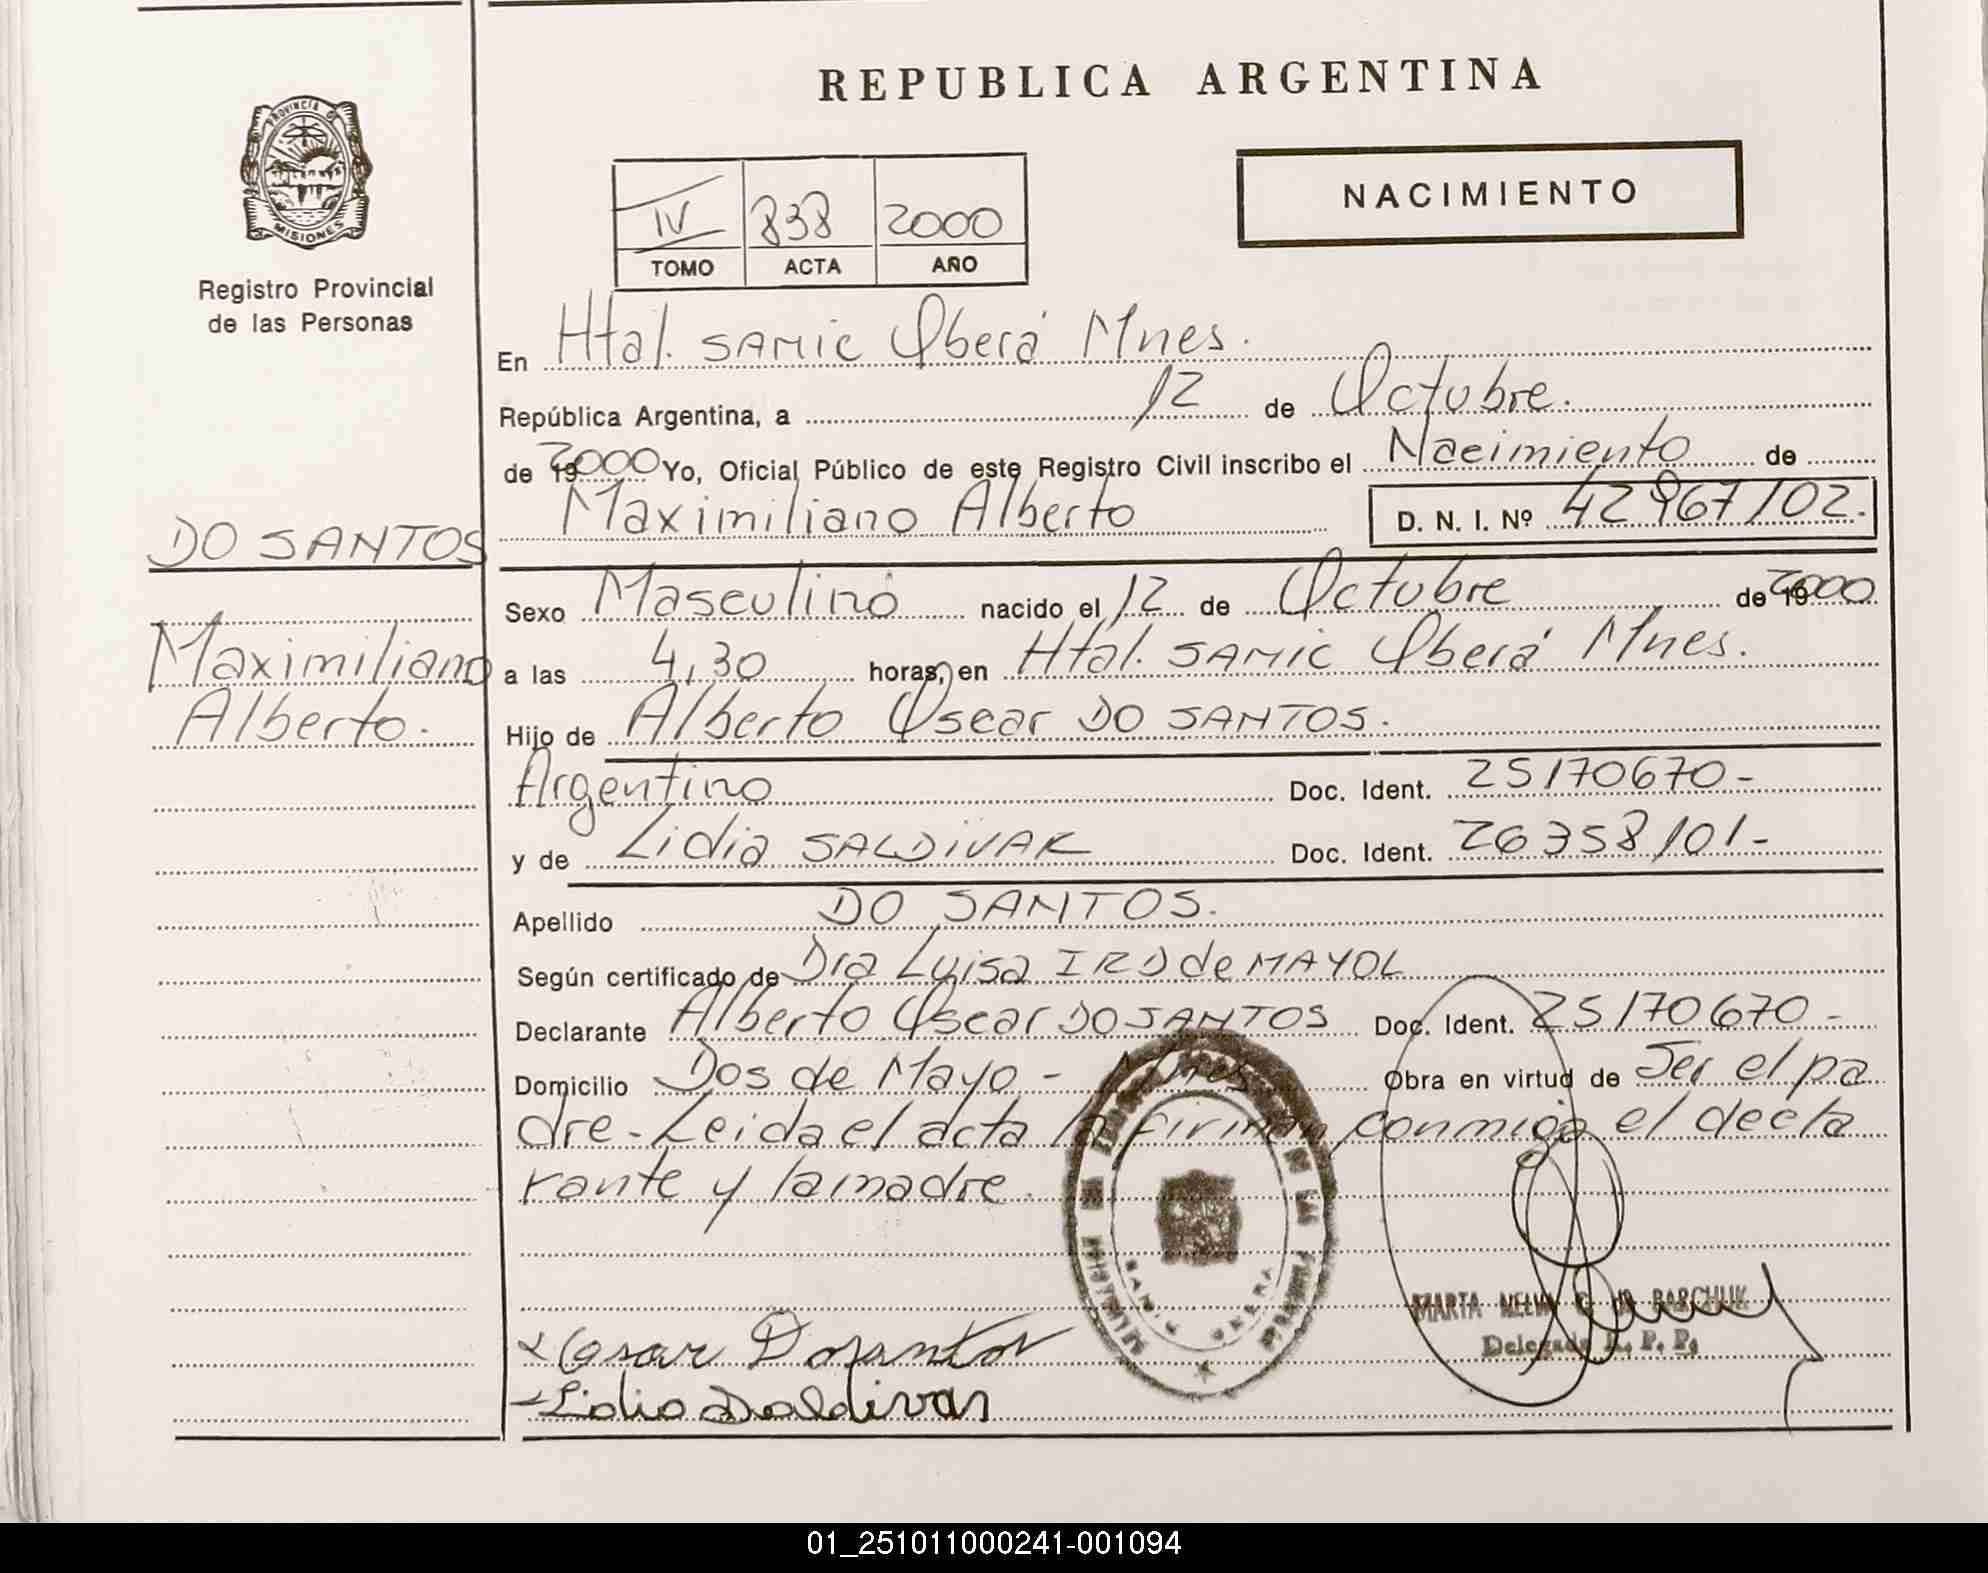 REPUBLICA ARGENTINA
PROVINCIA DE
MISIONES
Registro Provincial
de las Personas
IV 838 2000
TOMO ACTA AÑO
NACIMIENTO
En Htal. SAMIC Oberá Mnes.
República Argentina, a 12 de Octubre.
de 2000 Yo, Oficial Público de este Registro Civil inscribo el Nacimiento de
Maximiliano Alberto D. N. I. Nº 42967102.
DO SANTOS
Maximiliano
Alberto.
Sexo Masculino nacido el 12 de Octubre de 2000
a las 4,30 horas, en Htal. SAMIC Oberá Mnes.
Hijo de Alberto Oscar DO SANTOS.
Argentino Doc. Ident. 25170670-
y de Lidia SALDIVAR Doc. Ident. 26358101-
Apellido DO SANTOS.
Según certificado de Dra Luisa IRO de MAYOL
Declarante Alberto Oscar DO SANTOS Doc. Ident. 25170670-
Domicilio Dos de Mayo - Mnes Obra en virtud de Ser el pa
dre - Leida el acta la firman conmigo el decla
rante y la madre.
MARTA NELVA G. de BARCHUK
Delegada R. P. P.
Oscar Dosantos
Lidia Saldivar
01_251011000241-001094